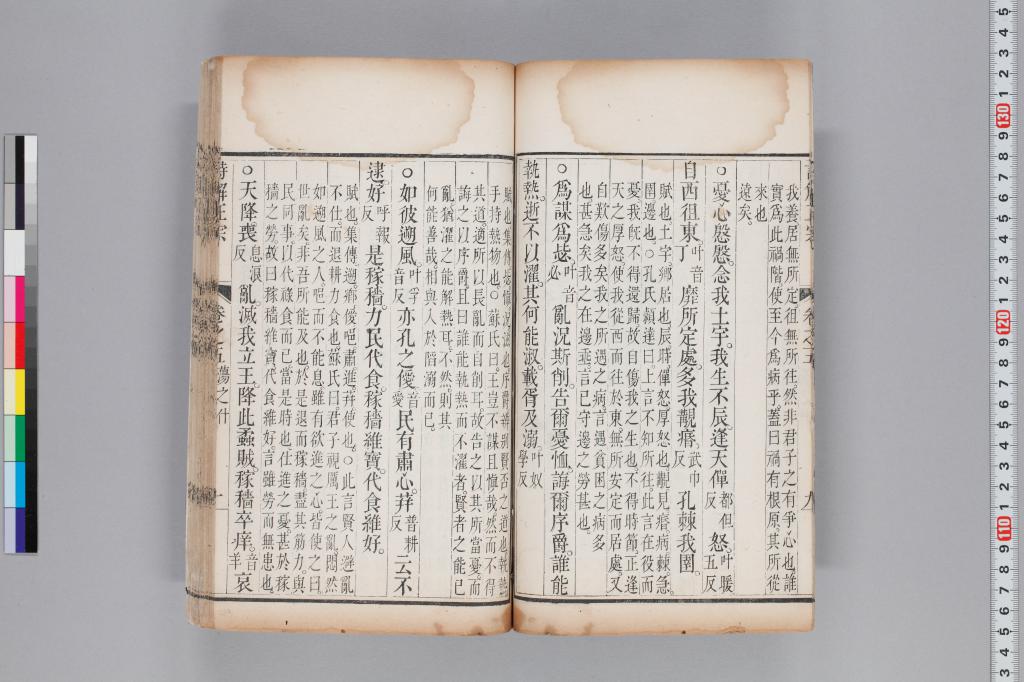 我養居無所定徂無所往然非君子之有爭心也誰
實爲此禍階使至今爲病乎蓋曰禍有根原其所從
來也
遠矣
○憂心慇慇念我土宇我生不辰逢天僤都但反怒叶暖五反
自西徂東叶音丁靡所定處多我覯痻武巾反孔棘我圉
賦也土宇鄉居也辰時僤怒厚怒也覯見痻病棘急
圉邊也○孔氏穎達曰上言不知所往此言在後而
憂我旣不得還歸故自傷我之生也不得時節正逢
天之厚怒使我從西而往於東無所安定而居處又
自歎傷多矣我之所遇之病言遇貧困之病多
也甚急矣我之在邊垂言已守邊之勞甚也
○爲謀爲毖叶音必亂況斯削告爾憂恤誨爾序爵誰能
執熱逝不以濯其何能淑載胥及溺叶奴學反
賦也集傳毖愼況滋也序爵辨別賢否之道也執熱
手持熱物也○蘇氏曰王豈不謀且愼哉然而不得
其道適所以長亂而自削耳故告之以其所當憂而
誨之以序爵且曰誰能執熱而不濯者賢者之能已
亂猶濯之能解熱耳不然則其
何能善哉相與入於陷溺而已
○如彼遡風叶孚音反亦孔之僾音愛民有肅心荓普耕反云不
逮好呼報反是稼穡力民代食稼穡維寶代食維好
賦也集傳遡鄉僾唈肅進荓使也○此言賢人遯亂
不仕而退耕力食也蘇氏曰君子視厲王之亂悶然
如遡風之人唈而不能息雖有欲進之心皆使之曰
世亂矣非吾所能及也於是退而稼穡盡其筋力與
民同事以代祿食而已當是時也仕進之憂甚於稼
穡之勞故曰稼穡維寶代食維好言雖勞而無患也
○天降喪息浪反亂滅我立王降此蟊賊稼穡卒痒音羊哀
詩解正宗 卷之五 蕩之什